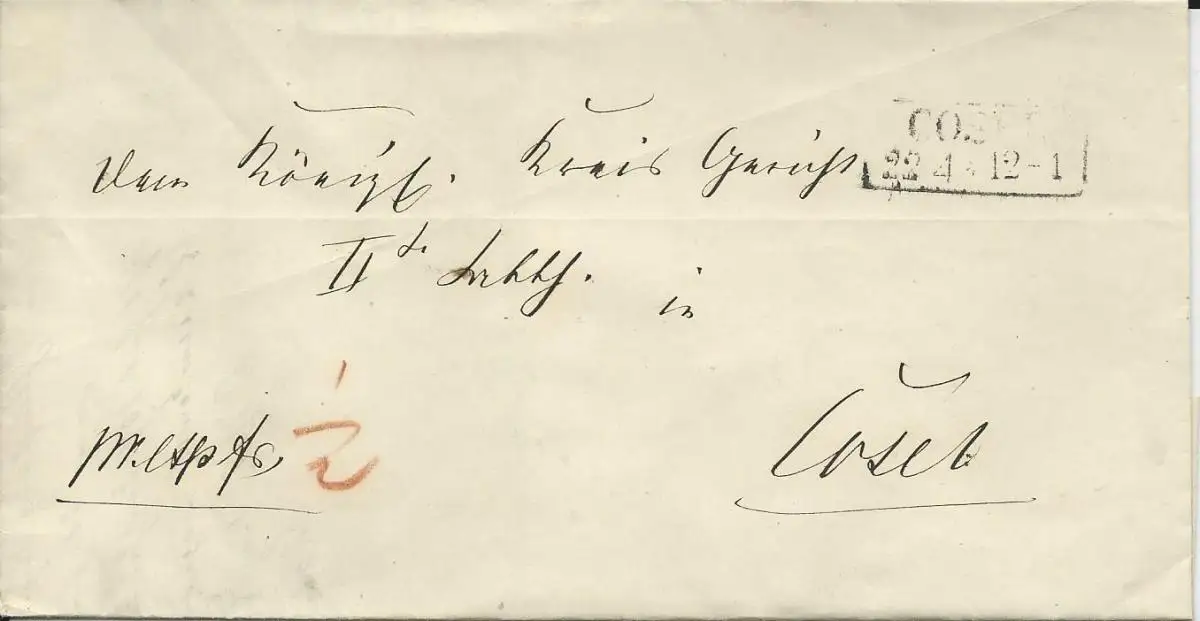 Dem Königl. Kreis Gericht
COSEL
22 4 * 12-1
IIte Abth.
in
1/2
Cosel